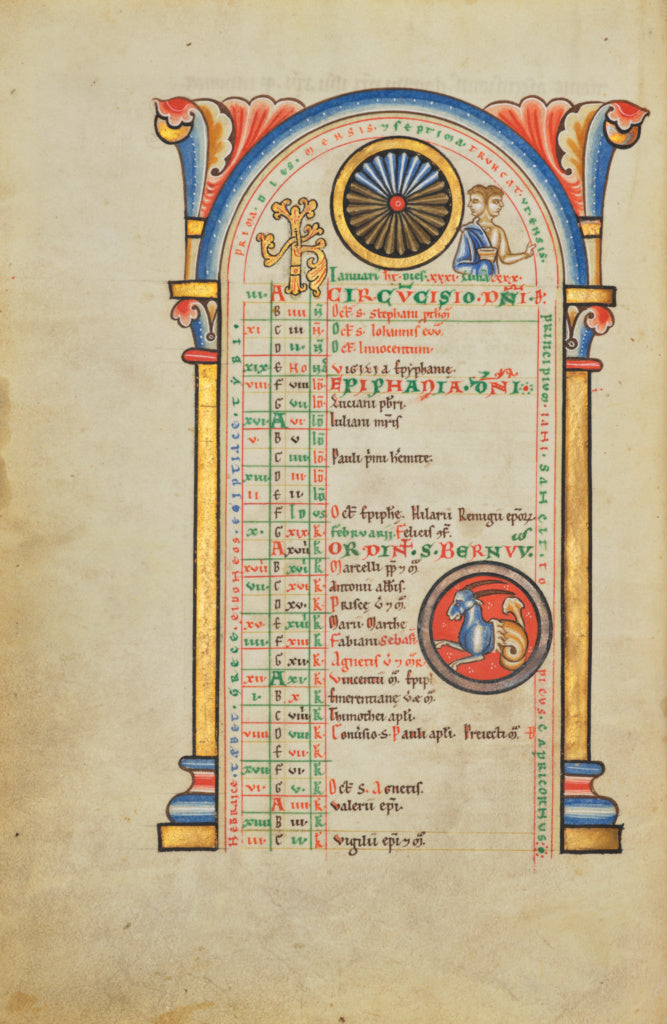 PRIMA · DIES · MENSIS · ⁊ SEPTIMA · TRUNCAT · UT · ENSIS ·
KL
Ianuari ht dies xxxi luna xxx
iii A CIRCVCISIO · DNI ·
B iiii N Oct s Stephani
xi C iii N Oct s Iohannis
D ii N Oct Innocentum
xix E NO Vigilia Epyphanie
viii F viii id EPIPHANIA · DNI ·
G vii id Luciani pbri
xvi A vi id Iuliani mris
v B v id
C iiii id Pauli primi hemite
xiii D iii id
ii E ii id
F IDus Oct Epiphe Hilarii Remigii
x G xix k Februarii Felicis
A xviii k ORDIN · S · BERNVV
xviii B xvii k Marcelli pp ⁊ m
vii C xvi k Antonii abbis
D xv k Prisce v ⁊ m
xv E xiiii k Marii Marthe
iiii F xiii k Fabiani Sebast
G xii k Agnetis v ⁊ m
xii A xi k Vincentii m Epi
i B x k Emerentiane v ⁊ m
C viiii k Thimothei apli
viiii D viii k Conuersio S Pauli apli Preiecti m
E vii k
xvii F vi k
vi G v k Oct S Agnetis
A iiii k Valerii epi
xiiii B iii k
iii C ii k Vigilii epi ⁊ m
HEBRAICE · TEBET · GRECE · EGIPTIACE · TYBI ·
PRINCIPIUM · IANI · SANCIT · TROPICUS · CAPRICORNUS ·